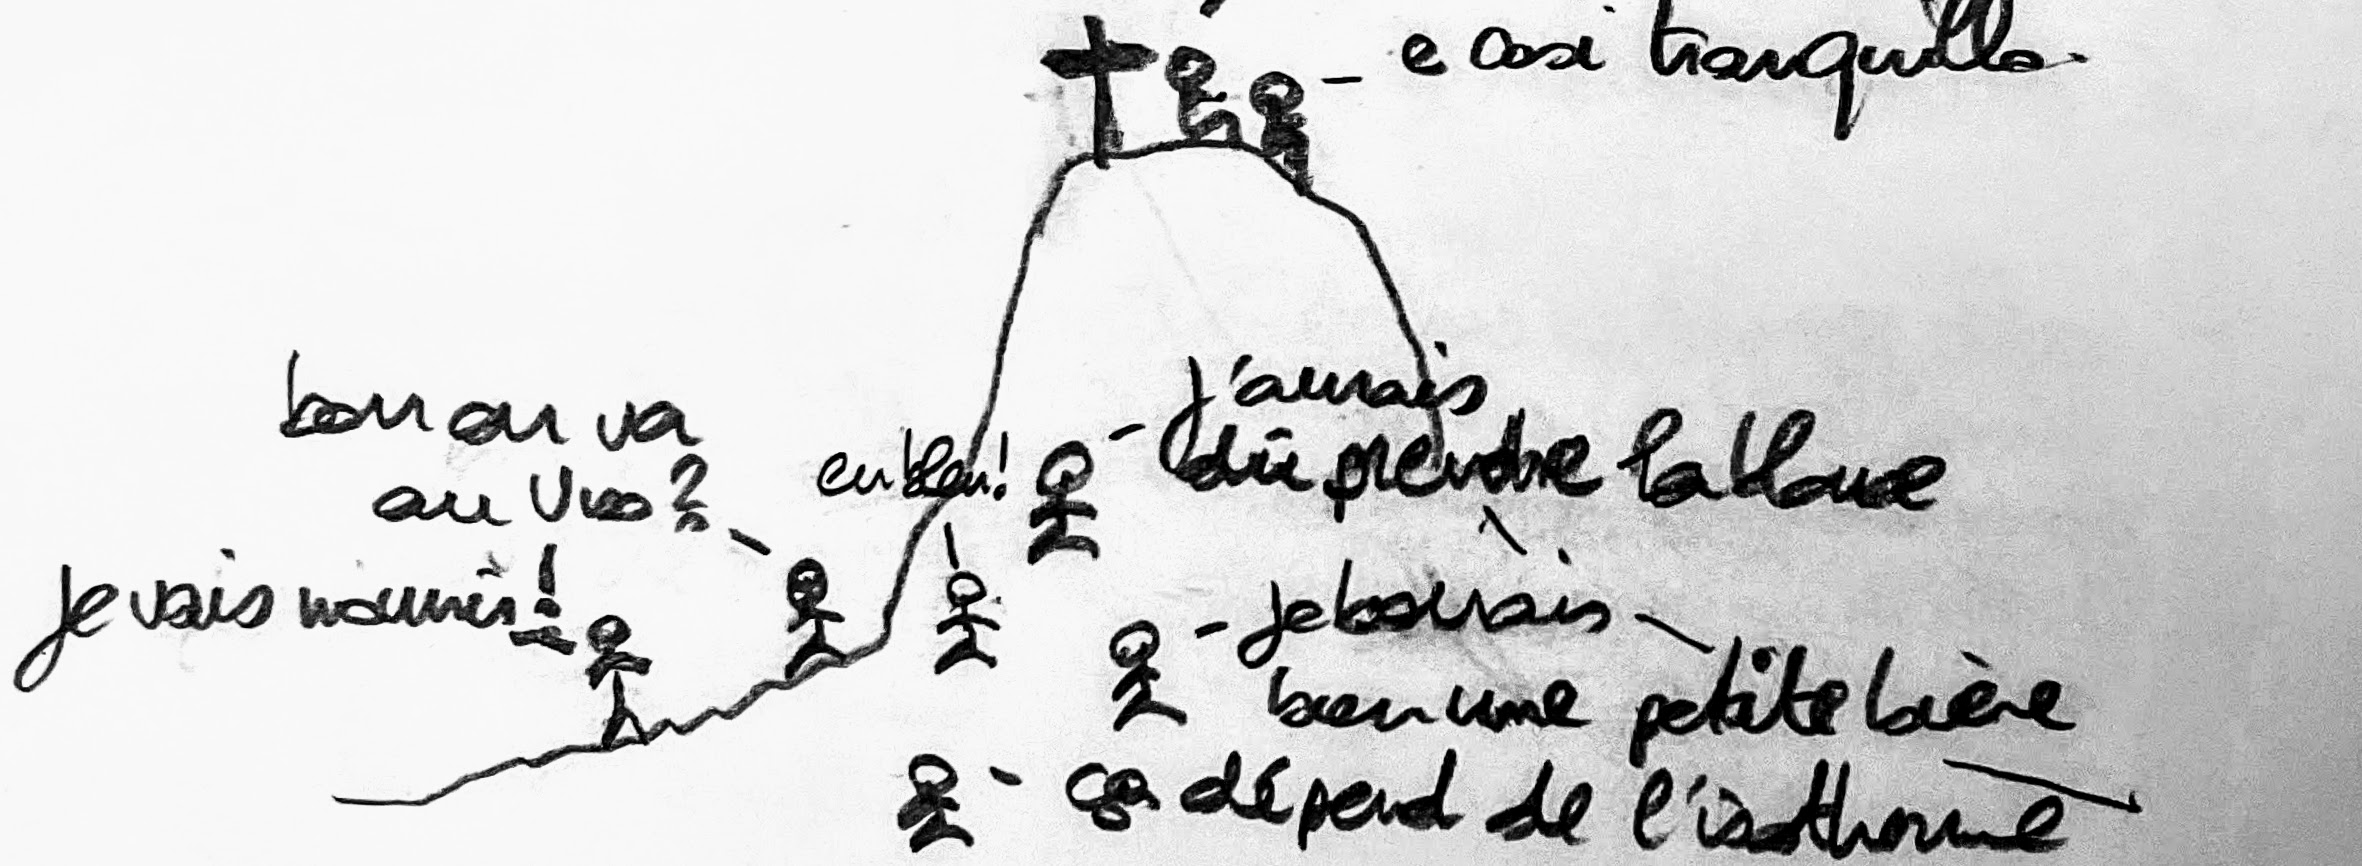 e cosi tranquillo.
bon on va
au Viso ?
je vais mourir !
en bleu !
j'aurais
dû prendre la bleue
je boirais
bien une petite bière
ça dépend de l'isotherme